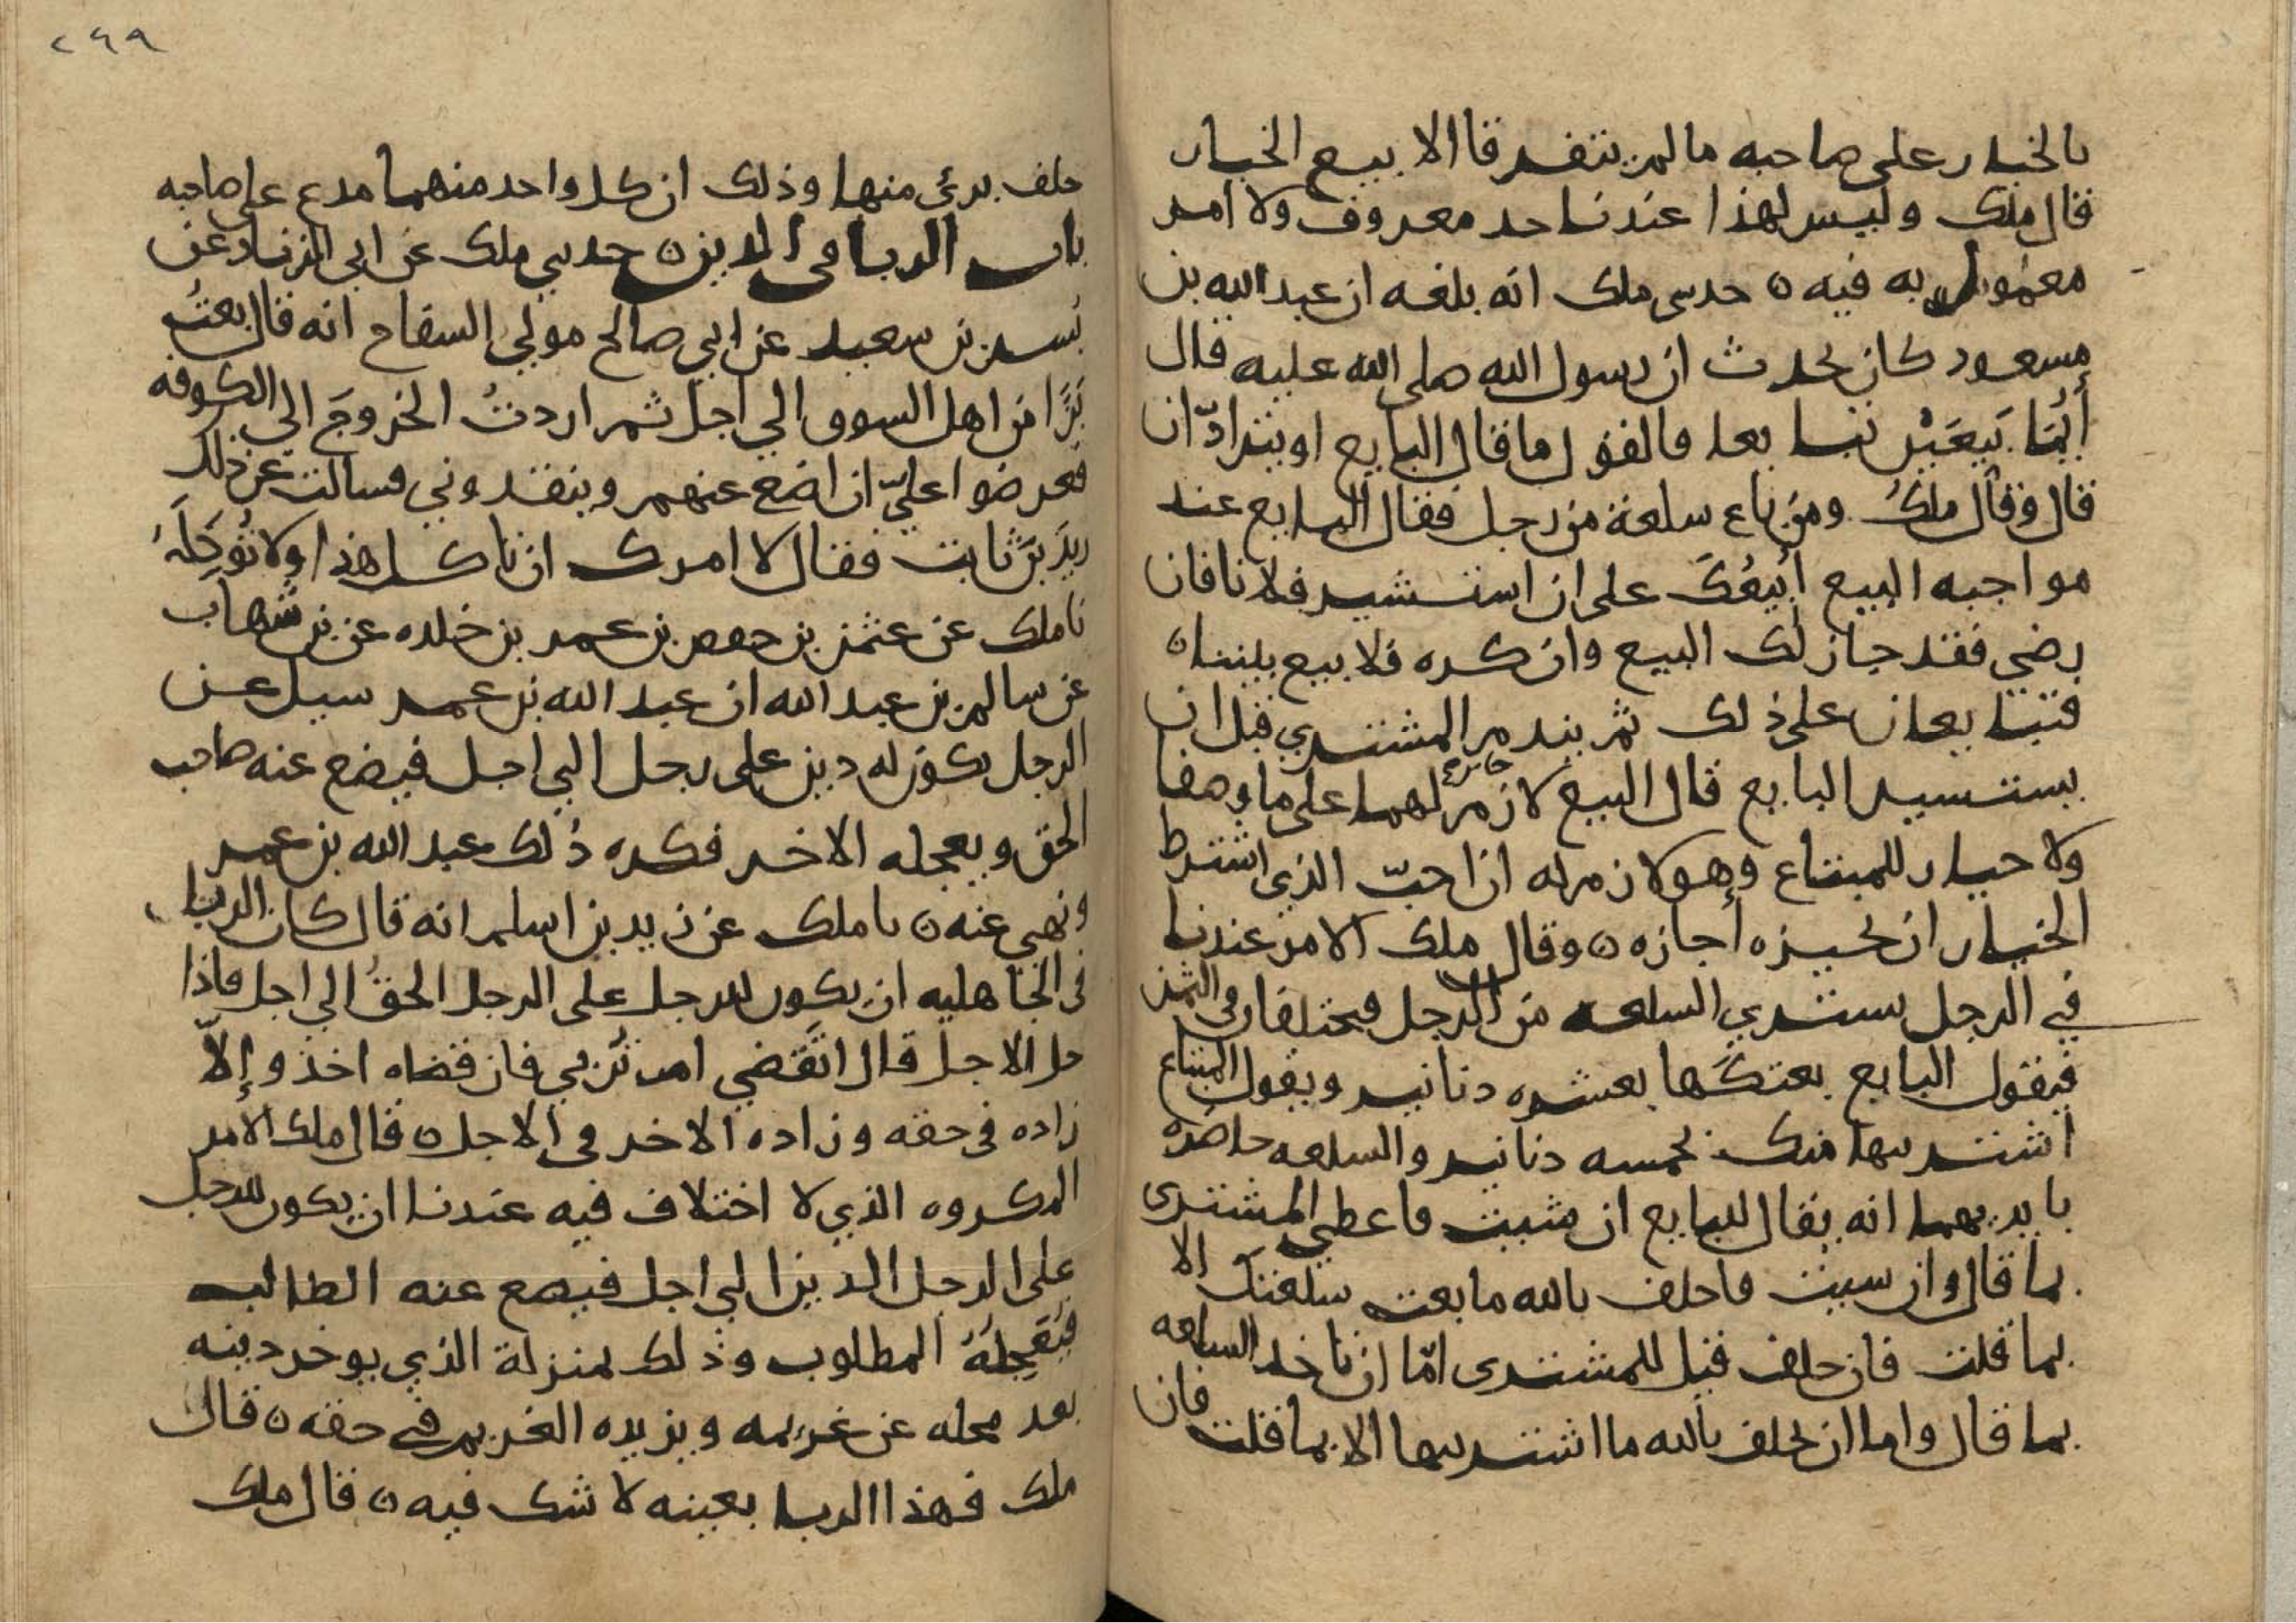 بالخيار على صاحبه ما لم يتفرقا الا بيع الخيار
قال ملك وليس لهذا عندنا حد معروف ولا امر
معمول به فيه ٥ حدثني ملك انه بلغه ان عبد الله بن
مسعود كان يحدث ان رسول الله صلى الله عليه قال
أَيُّمَا بَيِّعَيْن تبايعا فالقول ما قال البايع او يترادّان
قال وقال ملكُ ومن باع سلعة من رجل فقال البايع عند
مواجبه البيع أَبِيعُكَ على ان استشير فلانا فان
رضي فقد جاز لك البيع وان كره فلا بيع بيننا ٥
فتبايعان على ذلك ثم يندم المشتري قبل ان
يستشير البايع قال البيع لازم لهما على ما وصفا
جايز
ولا خيار للمبتاع وهو لازم له ان احبّ الذي اشترط
الخيار ان يجيزه أجازه ٥ وقال ملك الامر عندنا
في الرجل يشتري السلعه من الرجل فيختلفان في الثمن
فيقول البايع بعتكَها بعشره دنانير ويقول المبتاع
اشتريتها منك بخمسه دنانير والسلعه حاضره
بايديهما انه يقال للبايع ان شيت فاعطي المشتري
بما قال وان شيت فاحلف بالله ما بعت سلعتك الا
بما قلت فان حلف قيل للمشترى امّا ان تاخذ السلعه
بما قال واما ان تحلف بالله ما اشتريتها الا بما قلت فان
٢٦٩
حلف برئ منها وذلك ان كل واحد منهما مدع على صاحبه
باب الربا في الدين ٥ حدثني ملك عن ابي الزناد عن
بُسر بن سعيد عن ابي صالح مولي السفاح انه قال بعتُ
بَزًّا من اهل السوق الي اجل ثم اردتُ الخروجَ الي الكوفه
فعرضوا عليّ ان اضع عنهم وينقدوني فسالت عن ذلك
زيدَ بنَ ثابت فقال لا امرك ان تاكل هذا ولا تُوكِلَهُ
نا ملك عن عثمن بن حفص بن عمر بن خلده عن بن شهاب
عن سالم بن عبد الله ان عبد الله بن عمر سيل عن
الرجل يكون له دين على رجل الي اجل فيضع عنه صاحب
الحق ويعجله الاخر فكره ذلك عبد الله بن عمر
ونهى عنه ٥ نا ملك عن زيد بن اسلم انه قال كان الربا
في الجاهليه ان يكون للرجل على الرجل الحقُ الي اجل فاذا
حل الاجل قال اتَقضي ام تُربي فان قضاه اخذ وإلاّ
زاده في حقه وزاده الاخر في الاجل ٥ قال ملك الامر
المكروه الذي لا اختلاف فيه عندنا ان يكون للرجل
على الرجل الدين الي اجل فيضع عنه الطالب
فيُعَجِّلُهُ المطلوب وذلك بمنزلة الذي يوخر دينه
بعد محله عن غريمه ويزيده الغريم في حقه ٥ قال
ملك فهذا الربا بعينه لا شك فيه ٥ قال ملك